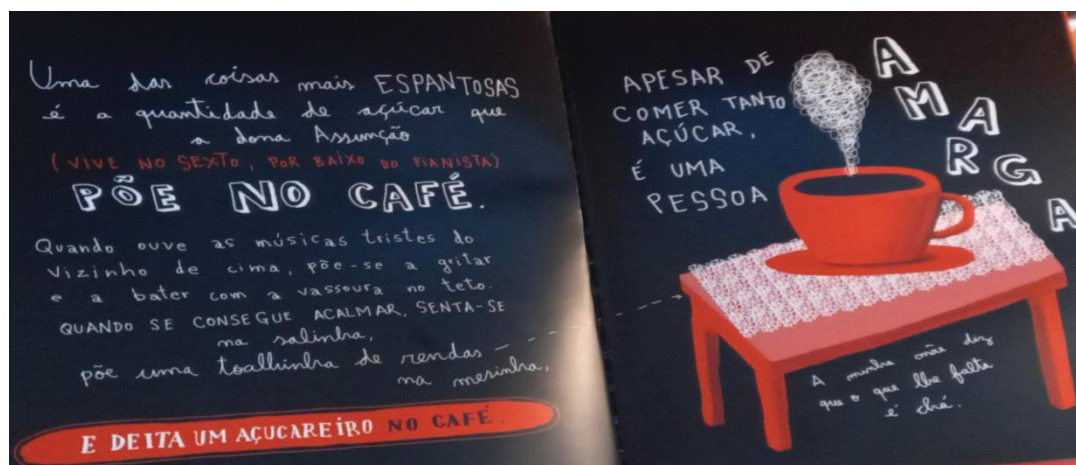 Uma das coisas mais ESPANTOSAS
é a quantidade de açúcar que
a dona Assunção
(VIVE NO SEXTO, POR BAIXO DO PIANISTA)
PÕE NO CAFÉ.
Quando ouve as músicas tristes do
vizinho de cima, põe-se a gritar
e a bater com a vassoura no teto.
QUANDO SE CONSEGUE ACALMAR, SENTA-SE
na salinha,
põe uma toalhinha de rendas
na mesinha,
E DEITA UM AÇUCAREIRO NO CAFÉ.
APESAR DE
COMER TANTO
AÇÚCAR,
É UMA
PESSOA
AMARGA
A minha mãe diz
que o que lhe falta
é chá.